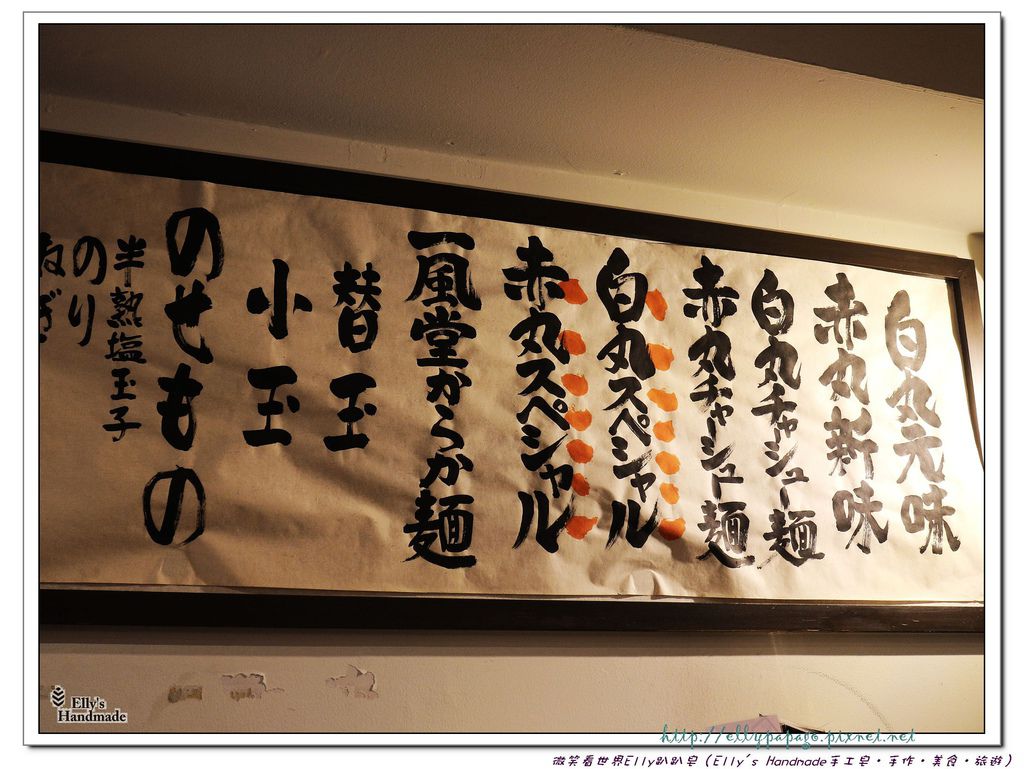 白丸元味
赤丸新味
白丸チャーシュー麺
赤丸チャーシュー麺
白丸スペシャル
赤丸スペシャル
一風堂からか麺
替玉
小玉
のせもの
半熟塩玉子
のり
ねぎ
Elly's
Handmade
http://ellypapago.pixnet.net
微笑看世界Elly趴趴皂 (Elly's Handmade手工皂・手作・美食・旅遊)